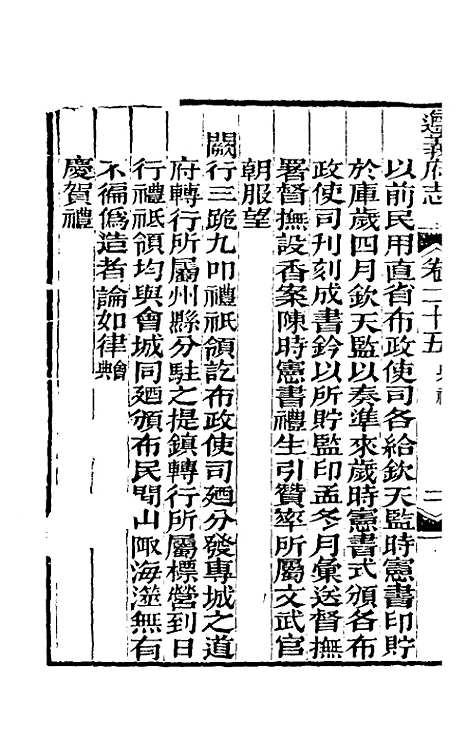 遵義府志
卷二十五 典禮 二
以前民用直省布政使司各給欽天監時憲書印貯
於庫歲四月欽天監以奏準來歲時憲書式頒各布
政使司刊刻成書鈐以所貯監印孟冬月彙送督撫
署督撫設香案陳時憲書禮生引贊率所屬文武官
朝服望
闕行三跪九叩禮祗領訖布政使司廼分發專城之道
府轉行所屬州縣分駐之提鎮轉行所屬標營到日
行禮祗領均與會城同廼頒布民間山陬海澨無有
不徧僞造者論如律會典
慶賀禮